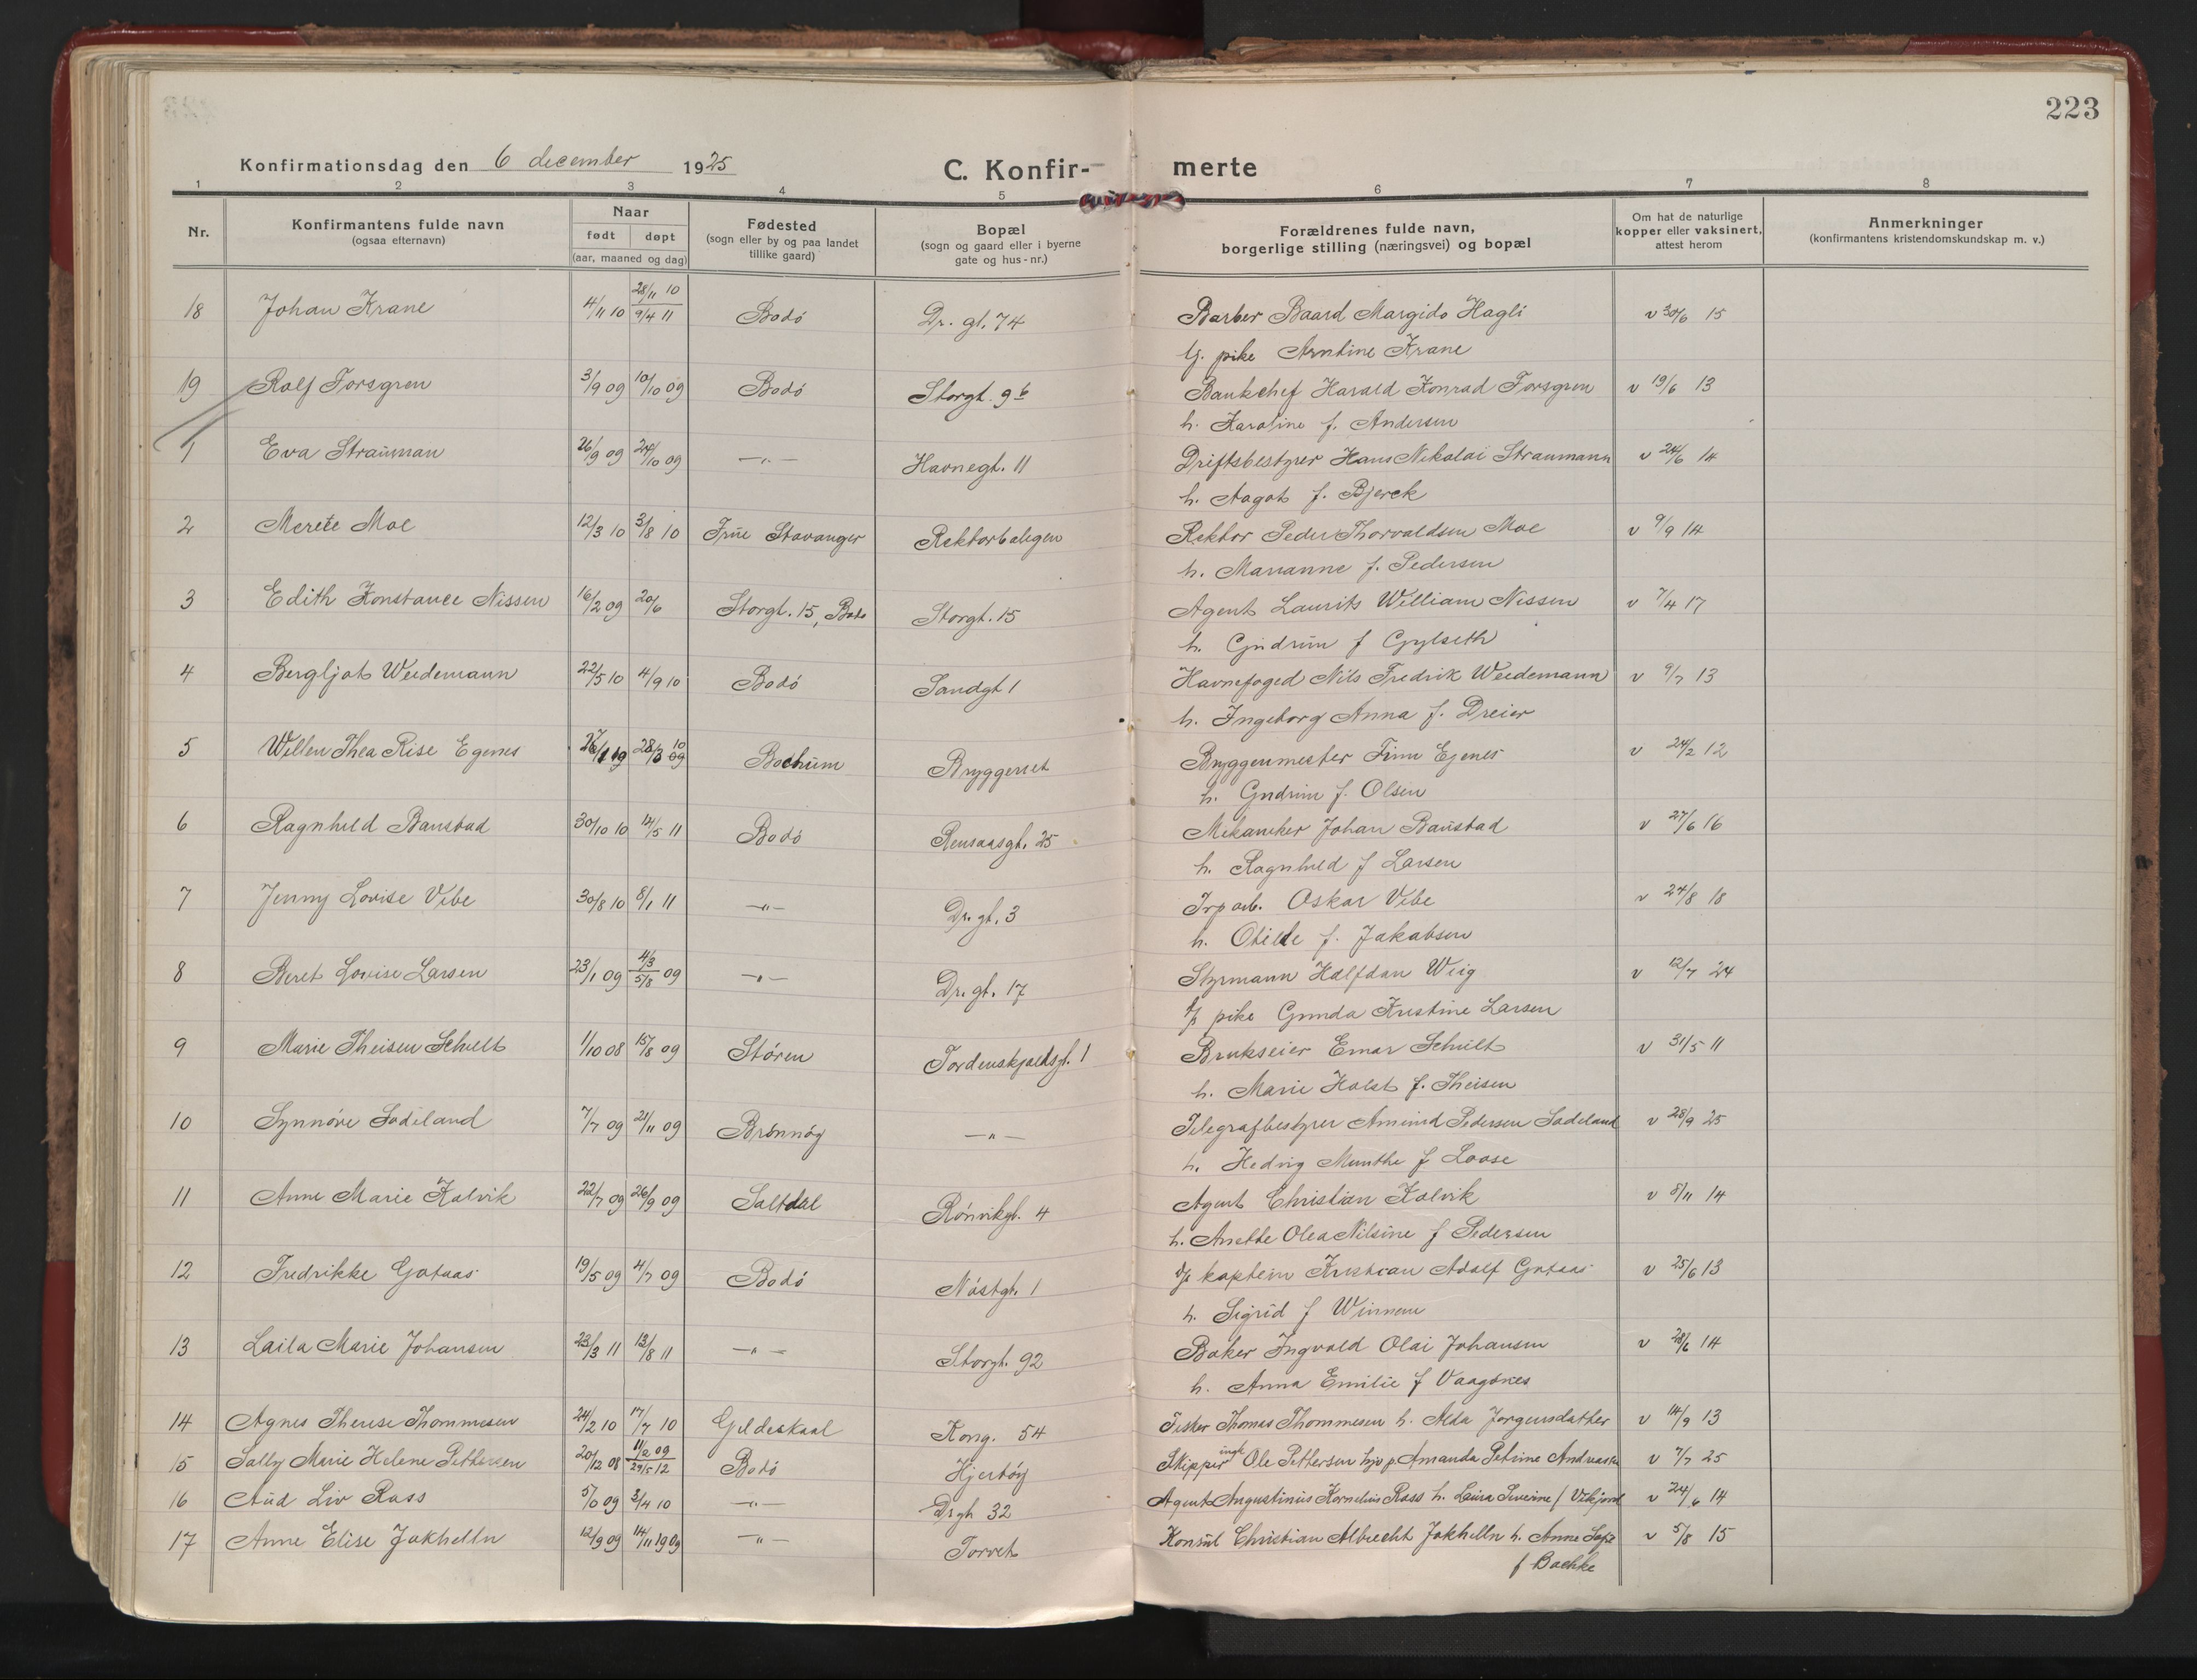 223
Konfirmationsdag den 6 december 1925 C. Konfir- merte
1 2 3 4 5 6 7 8
Nr. Konfirmantens fulde navn (ogsaa efternavn) Naar født døpt (aar, maaned og dag) Fødested (sogn eller by og paa landet tillike gaard) Bopæl (sogn og gaard eller i byerne gate og hus-nr.) Forældrenes fulde navn, borgerlige stilling (næringsvei) og bopæl Om hat de naturlige kopper eller vaksinert, attest herom Anmerkninger (konfirmantens kristendomskundskap m. v.)
18 Johan Krane 4/11 10 28/11 10 9/4 11 Bodó Dr. gt. 74 Barber Baard Margido Hagli v 30/6 15
G. pike Arntine Krane
19 Rolf Forsgren 3/9 09 10/10 09 Bodó Storgt. 9b Bankchef Harald Konrad Forsgren v 19/6 13
h. Karoline f. Andersen
1 Eva Straŭman 26/9 09 24/10 09 —„— Havnegt. 11 Driftsbestyrer Hans Nikolai Straumann v 24/6 14
h. Aagot f. Bjerck
2 Merete Moe 12/3 10 3/8 10 Frŭe Stavanger Rektorboligen Rektor Peder Thorvaldsen Moe v 9/9 14
h. Marianne f. Pedersen
3 Edith Konstance Nissen 16/2 09 20/6 Storgt. 15, Bodo Storgt. 15 Agent Laurits William Nissen v 7/4 17
h. Gudrŭn f Gylseth
4 Bergljot Weidemann 22/5 10 4/9 10 Bodó Sandgt 1 Havnefoged Nils Fredrik Weidemann v 9/7 13
h. Ingeborg Anna f. Dreier
5 Willen Thea Rise Egenes 28/3 Bochŭm Bryggeriet Bryggermester Finn Egenes v 24/2 12
h. Gudrun f. Olsen
6 Ragnhild Baustad 30/10 10 14/5 11 Bodó Rensaasgt. 25 Mekaniker Johan Baŭstad v 27/6 16
h. Ragnhild f Larsen
7 Jenny Lovise Vibe 30/8 10 8/1 11 —„— Dr. gt. 3 Oskar Vibe v 24/8 18
h. Otilde f. Jakobsen
8 Beret Lovise Larsen 23/1 09 4/3 5/8 09 —„— Dr. gt. 17 Styrmann Halfdan Wiig v 12/7 24
pike Gunda Kristine Larsen
9 Marie Theisen Schult 1/10 08 15/8 09 Stóren Tordenskjoldsgt. 1 Brukseier Einar Schŭlt v 31/5 11
h. Marie Holst f. Theisen
10 Synnóve Sódeland 7/7 09 21/11 09 Brónnóy —„— Telegrafbestyrer Amund Pedersen Sódeland v 28/9 25
h. Hedvig Munthe f Loose
11 Anne Marie Kalvik 22/7 09 26/9 09 Saltdal Rónvikgt. 4 Agent Christian Kalvik v 8/11 14
h. Anette Olea Nilsine f Pedersen
12 Fredrikke Gotaas 19/5 09 4/7 09 Bodó Nóstgt. 1 kaptein Kristian Adolf Gotaas v 25/6 13
h. Sigrid f Winnem
13 Laila Marie Johansen 23/3 11 13/8 11 —„— Storgt. 92 Baker Ingvald Olai Johansen v 28/6 14
h. Anna Emilie f Vaagónes
14 Agnes Therese Thommesen 24/2 10 17/7 10 Gildeskaal Kong. 54 Fisker Thomas Thommesen h. Alda Jorgensdatter v 14/9 13
15 Sally Marie Helene Pettersen 20/12 08 11/2 09 29/5 12 Bodó Hjertóy Skipper ungk Ole Pettersen hjv p. Amanda Petrine Andreasen v 7/7 25
16 Aŭd Liv Rass 3/4 10 —„— Drgt 32 Agent Augustinius Kornelius Rass h. Laura Severine f Vikjord v 24/6 14
17 Anne Elise Jakhelln 12/9 09 14/11 1909 —„— Torvet Konsŭl Christian Albrecht Jakhelln h. Anne Sofie v 5/8 15
f Baehke